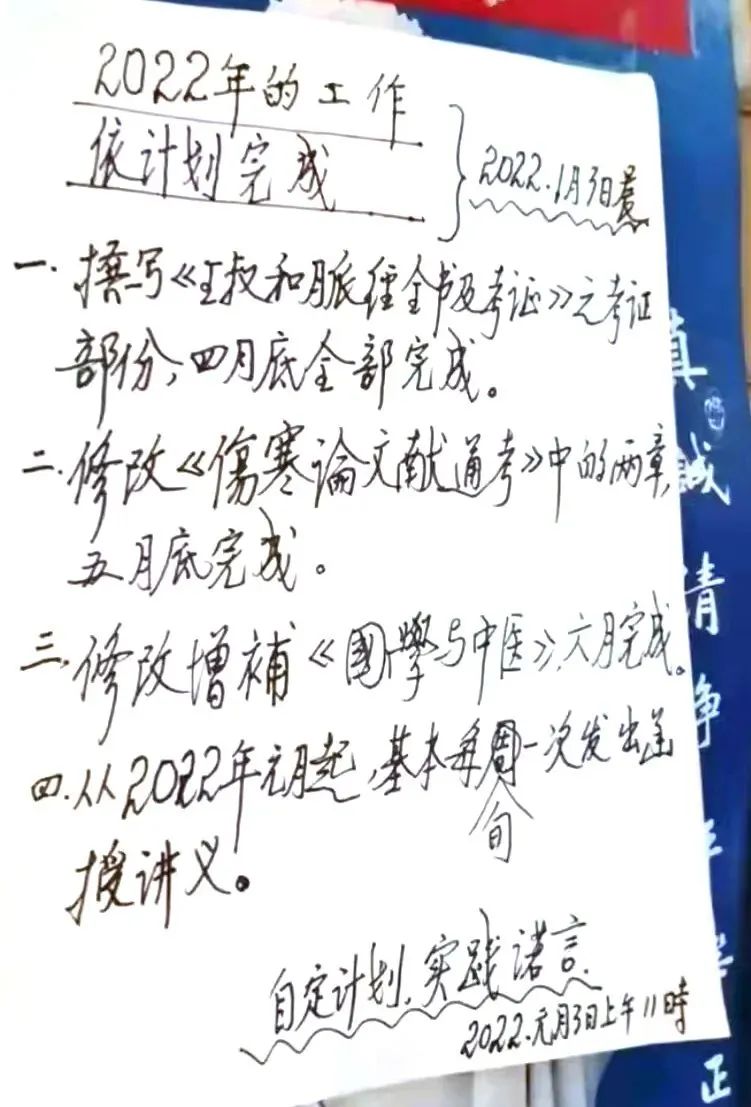 2022年的工作
依计划完成
2022.1月3日晨
一.撰写《王叔和脈经全书及考证》之考证
部份,四月底全部完成。
二.修改《傷寒論文献通考》中的两章,
五月底完成。
三.修改增補《國學与中医》,六月完成。
四.从2022年元月起,基本每周一次发出函
旬
授讲义。
自定计划,实践诺言.
2022.元月3日上午11時
真
誠
清
净
正